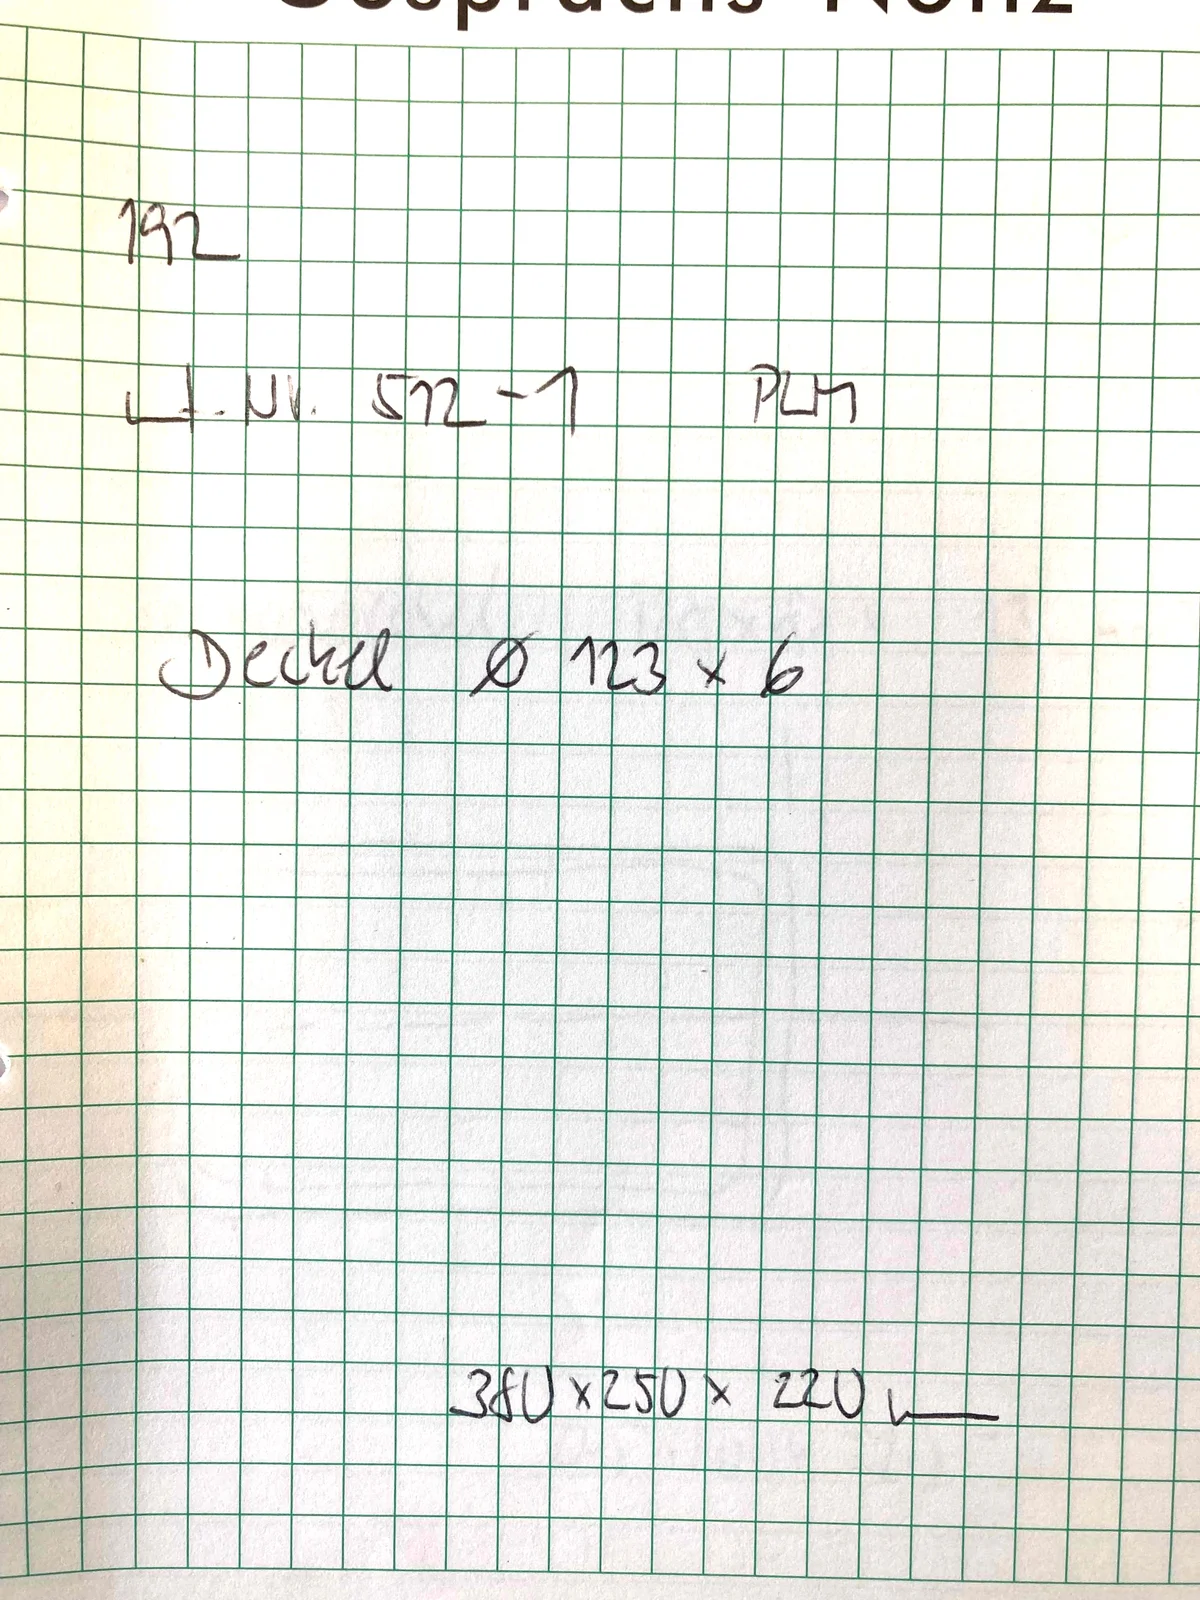 Gesprächs-Notiz
192
Lf. Nr. 512-1 PLM
Deckel Ø 123 x 6
380 x 250 x 220